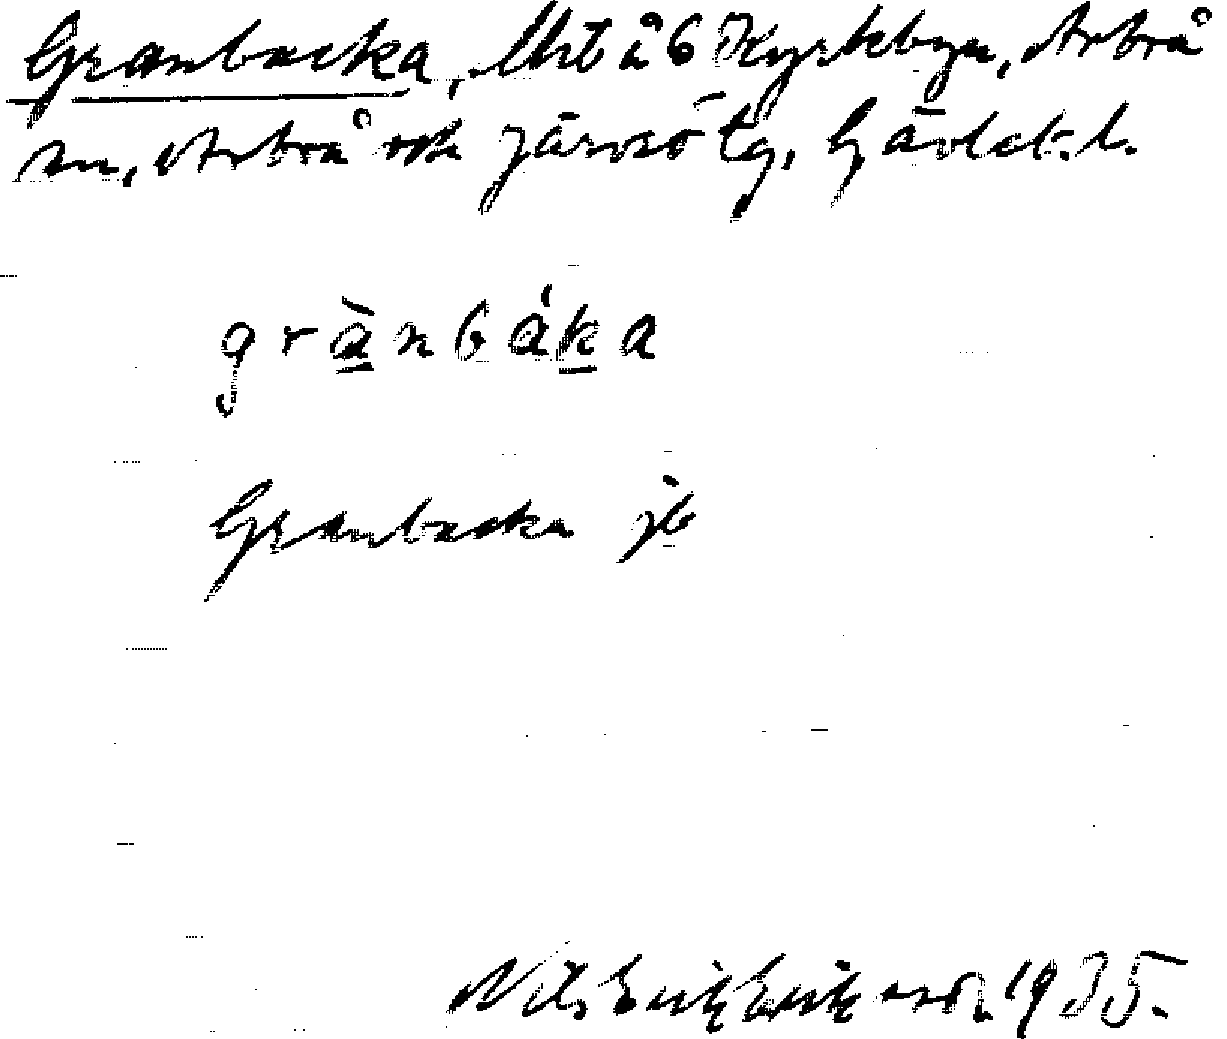 Granbacka, Urb å 6 Kyrkbyn, Arbrå
sn, Arbrå och Järvsö tg, Gävleb. l.
grànbáka
Granbacka jb
Nils Erik Eriksson 1935.